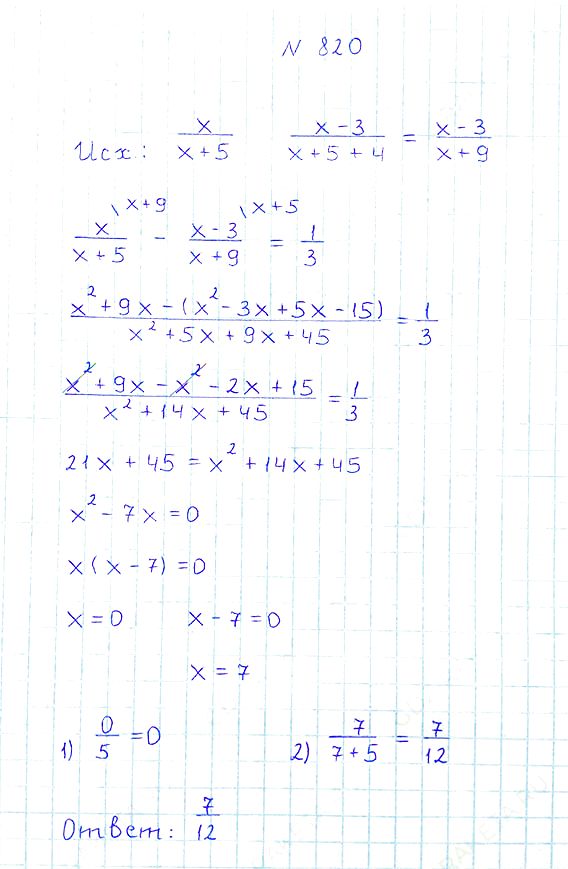 N 820
Исх: x/(x+5) (x-3)/(x+5+4) = (x-3)/(x+9)
x/(x+5) \x+9 - (x-3)/(x+9) \x+5 = 1/3
(x²+9x-(x²-3x+5x-15))/(x²+5x+9x+45) = 1/3
(x²+9x-x²-2x+15)/(x²+14x+45) = 1/3
21x+45=x²+14x+45
x²-7x=0
x(x-7)=0
x=0 x-7=0
x=7
1) 0/5=0 2) 7/(7+5) = 7/12
Ответ: 7/12